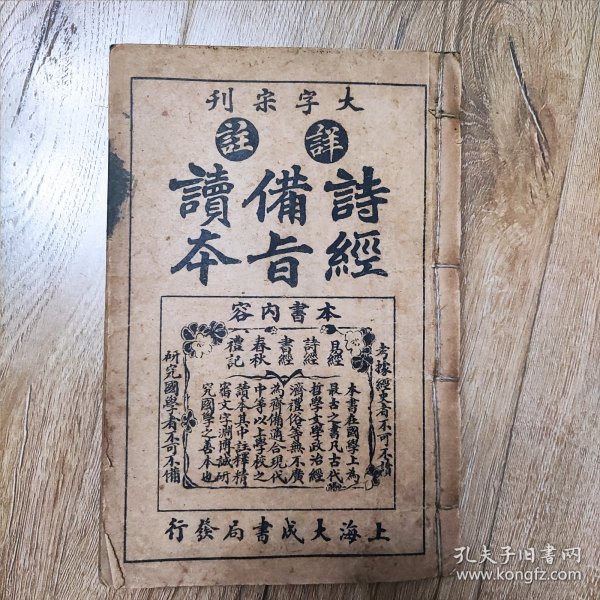 大字宋刊
詳註
詩經
備旨
讀本
本書內容
易經
詩經
書經
春秋
禮記
本書在國學上為
最古之書凡古代
哲學文學政治經
濟禮俗等無不廣
為齊備適合現代
中等以上學校之
讀本其中註釋精
審文字淵博誠研
究國學之善本也
考據經史者不可不讀
研究國學者不可不備
上海大成書局發行
孔夫子旧书网
www.kongfz.com